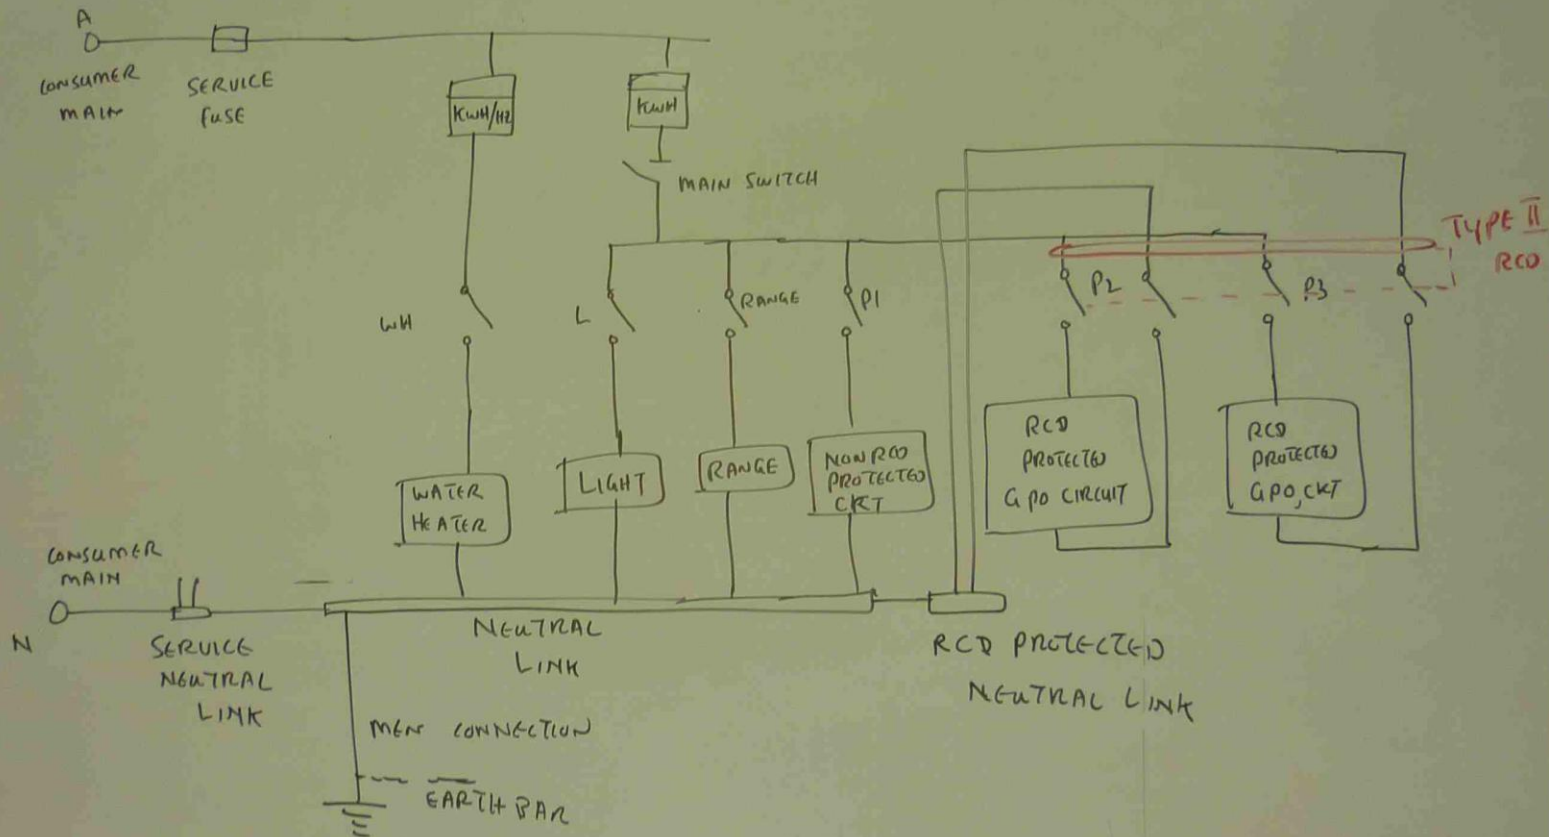 A
CONSUMER
MAIN
SERVICE
FUSE
KWH/HZ
KWH
MAIN SWITCH
TYPE II
RCD
WH
L
RANGE
P1
P2
P3
WATER
HEATER
LIGHT
RANGE
NON RCD
PROTECTED
CKT
RCD
PROTECTED
GPO CIRCUIT
RCD
PROTECTED
GPO, CKT
CONSUMER
MAIN
N
SERVICE
NEUTRAL
LINK
NEUTRAL
LINK
RCD PROTECTED
NEUTRAL LINK
MEN CONNECTION
EARTH BAR